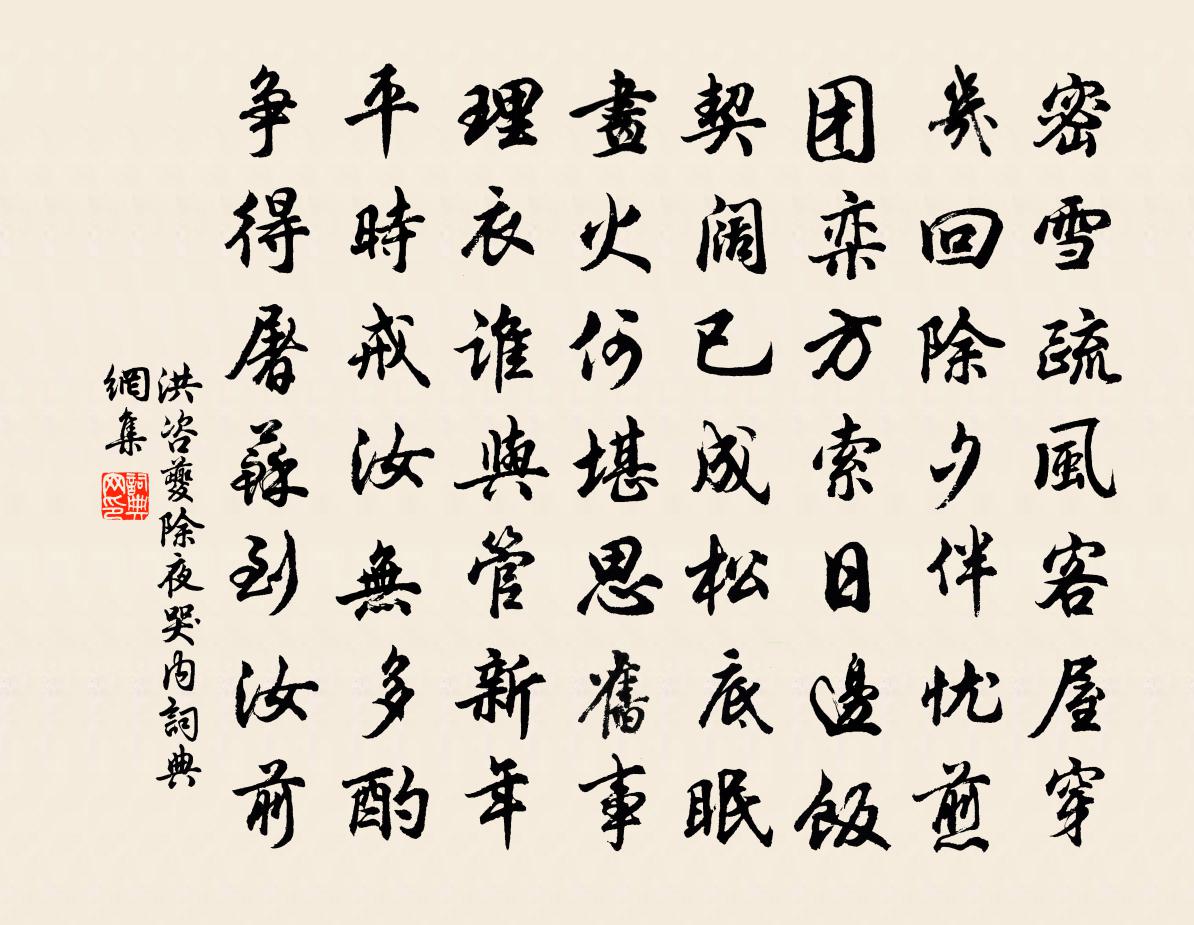 密雪疏風客屋穿
幾回除夕伴忧煎
团栾方索日邊飯
契阔已成松底眠
畫火何堪思舊事
理衣誰與管新年
平時戒汝無多酌
争得屠蘇到汝前
洪咨夔除夜哭内詞典
網集
詞典
网印